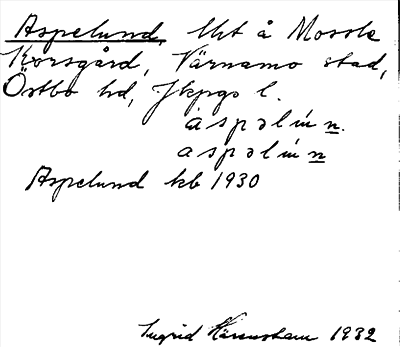 Aspelund, lht å Mossle
Korsgård, Värnamo stad,
Östbo hd, Jkpgs l.
áspəlún.
aspəlún
Aspelund kb 1930
Ingrid 1932